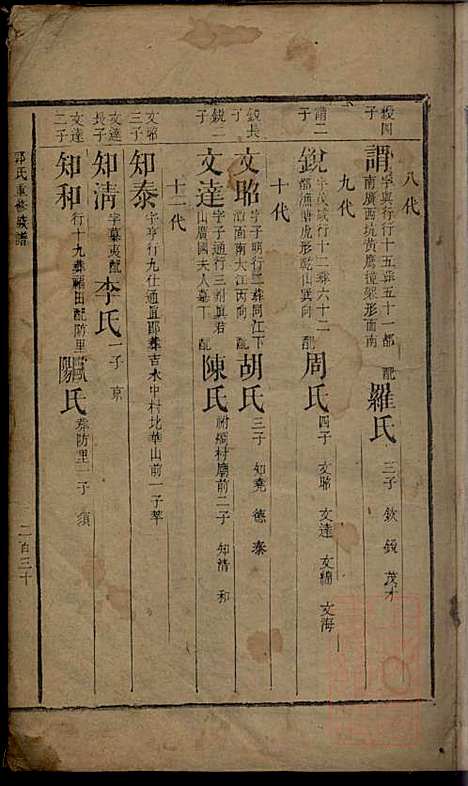 八代
綬四子
謂 字興行行十五葬五十一都南廣西坑黄鷹撞架形面南 配 羅氏 三子 欽 鋭 茂才
九代
謂二子
鋭 字茂咸行十二葬六十二都漁塘虎形乾山巽向 配 周氏 四子 文昭 文達 文綿 文海
十代
鋭長子
文昭 字子明行二葬同江下潭面南大江丙向 配 胡氏 三子 知堯 德 泰
鋭二子
文達 字子通行三制與君山廣國夫人墓下 配 陳氏 祔綱村廟前二子 知清 和
十一代
文昭三子
知泰 字亨行九仕通直郎葬吉水中村北華山前一子 莘
文達長子
知清 字慕夷配 李氏 一子 京
文達二子
知和 行十九葬福田配防里 歐陽氏 葬防里一子 須
郭氏重修族譜
二百三十